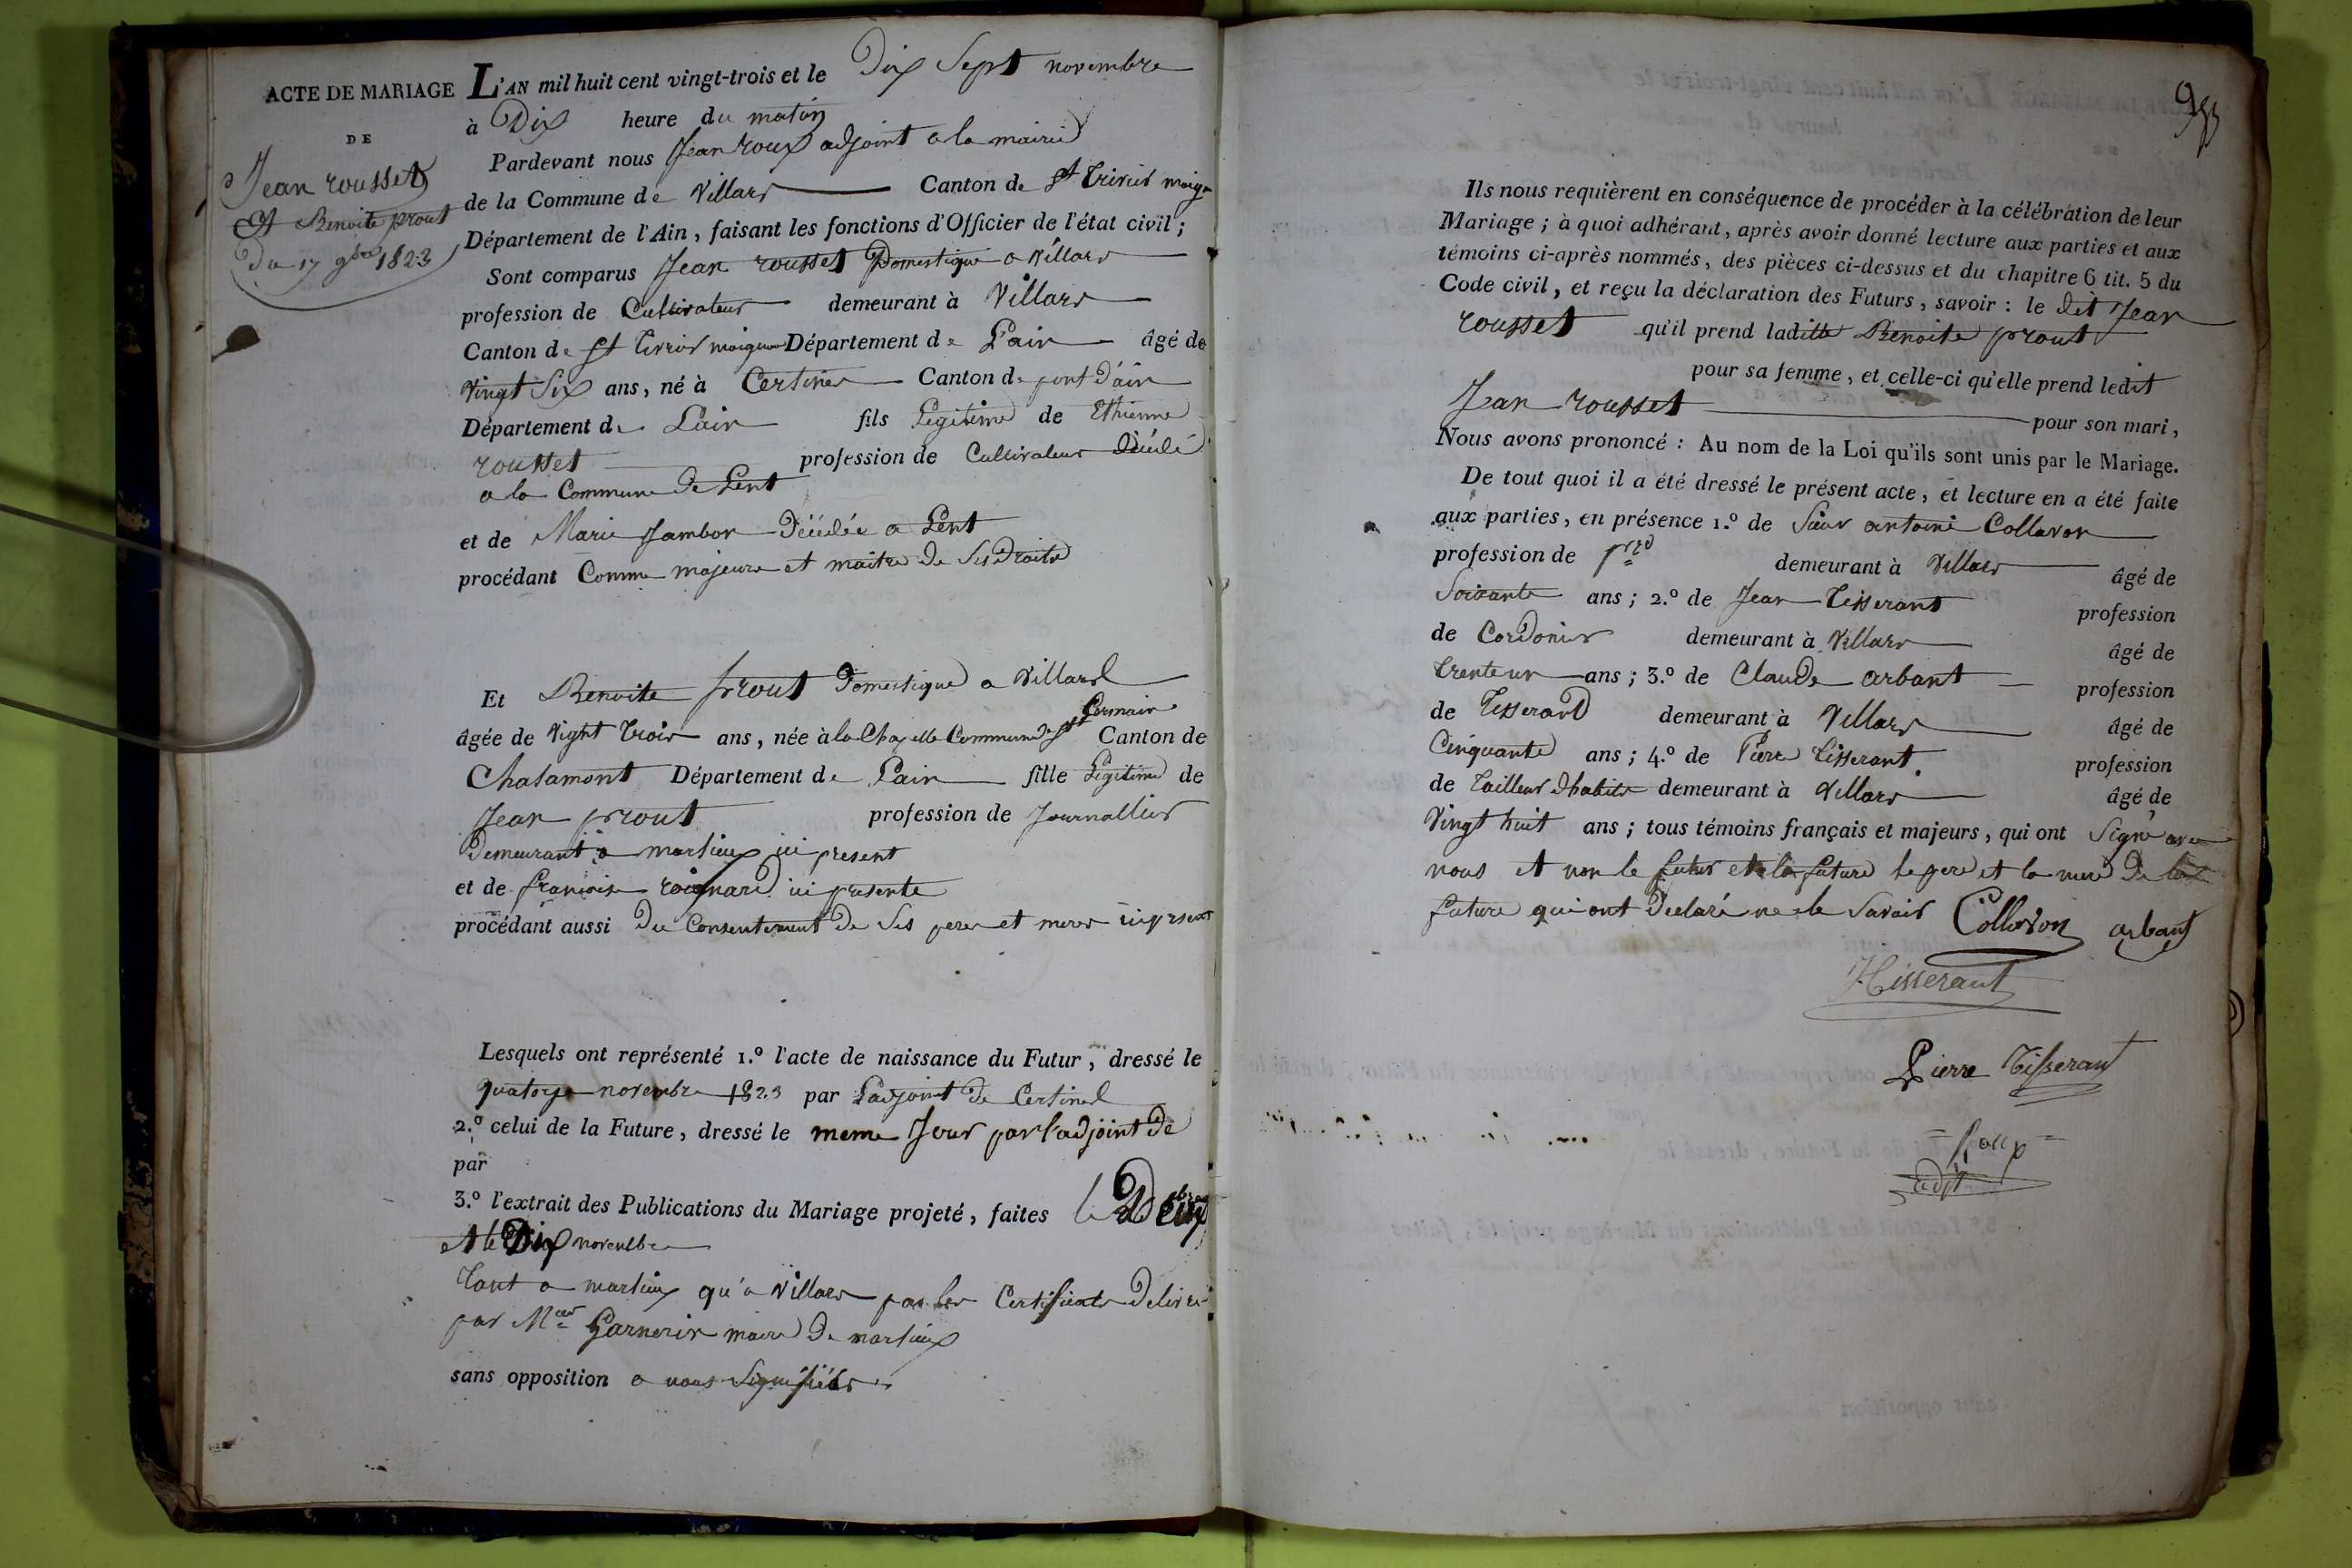 ACTE DE MARIAGE
DE
Jean rousset
Et Benoite prout
Du 17 9bre 1823
L'AN mil huit cent vingt-trois et le Dix Sept novembre
à Dix heure du matin
Pardevant nous Jean roux adjoint a la mairie
de la Commune de Villars Canton de St Trivier moig
Département de l'Ain, faisant les fonctions d'Officier de l'état civil;
Sont comparus Jean rousset Domestique a Villars
profession de Cultivateur demeurant à Villars
Canton de St Trivier Département de Lain âgé de
Vingt Six ans, né à Certines Canton de pont d'ain
Département de Lain fils Legitime de Ethienne
rousset profession de Cultivateur Décédé
a la Commune de Lent
et de Marie Jambon Décédée a Lent
procédant Comme majeure et maitre de Ses Droits
Et Benoite prout Domestique a Villard
âgée de Vight Trois ans, née à la Chapelle Commune de St Germain Canton de
Chalamont Département de Lain fille Legitime de
Jean prout profession de Journallier
Demeurant a marlieux ici present
et de francoise roignard ici presente
procédant aussi Du Consentement De Ses peres et meres ici prsent
Lesquels ont représenté 1.º l'acte de naissance du Futur, dressé le
quatorze novembre 1823 par Ladjoint de Certines
2.º celui de la Future, dressé le meme Jour par l'adjoint de
par
3.º l'extrait des Publications du Mariage projeté, faites le Deux
et le Dix novembre
Tant a marlieux qu'a Villars par les Certificats Delivré
par Garnerin maire De marlieux
sans opposition a nous Signifiées
Ils nous requièrent en conséquence de procéder à la célébration de leur
Mariage; à quoi adhérant, après avoir donné lecture aux parties et aux
témoins ci-après nommés, des pièces ci-dessus et du chapitre 6 tit. 5 du
Code civil, et reçu la déclaration des Futurs, savoir : le dit Jean
rousset qu'il prend laditte Benoite prout
pour sa femme, et celle-ci qu'elle prend ledit
Jean rousset pour son mari,
Nous avons prononcé : Au nom de la Loi qu'ils sont unis par le Mariage.
De tout quoi il a été dressé le présent acte, et lecture en a été faite
aux parties, en présence 1.º de Sieur antoine Collavon
profession de demeurant à Villars âgé de
Soixante ans; 2.º de Jean Tisserant profession
de Cordonier demeurant à Villars âgé de
trente un ans; 3.º de Claude arbant profession
de Tisserand demeurant à Villars âgé de
Cinquante ans; 4.º de Pierre Tisserant profession
de Tailleur dhabits demeurant à Villars âgé de
Vingt huit ans; tous témoins français et majeurs, qui ont Signé avec
nous et non le futur et la future le pere et la mere De la
future qui ont Declaré ne le Savoir Collavon arbant
Tisserant
Pierre Tisserant
Roux
adjt